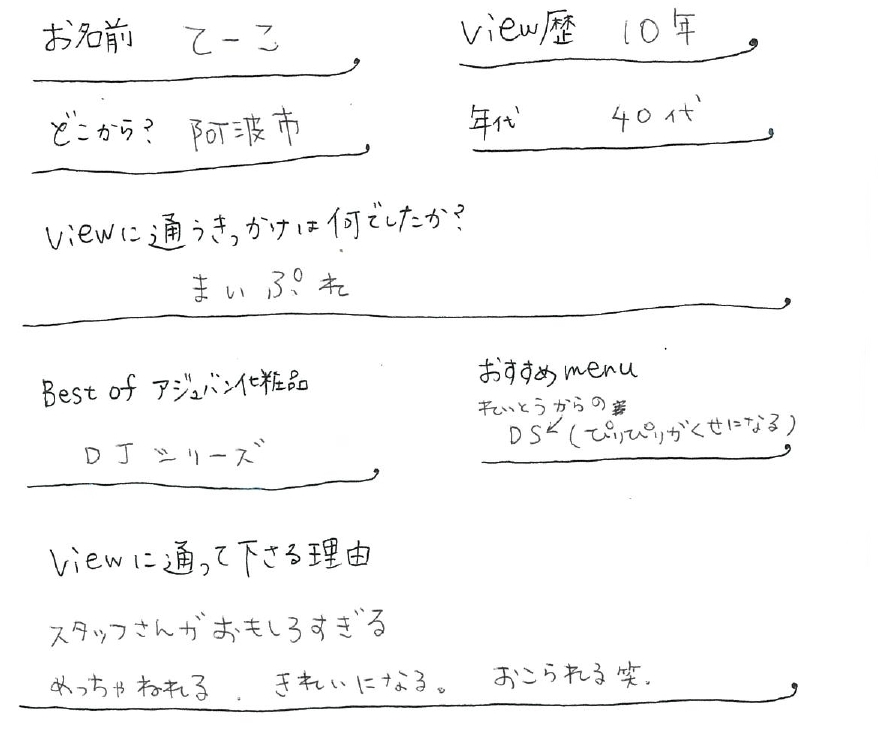 お名前 てーこ
View歴 10年
どこから? 阿波市
年代 40代
Viewに通うきっかけは何でしたか?
まいぷれ
Best of アジュバン化粧品
DJシリーズ
おすすめmenu
れいとうからの
DS↙(ぴりぴりがくせになる)
Viewに通って下さる理由
スタッフさんがおもしろすぎる
めっちゃねれる. きれいになる。 おこられる笑.